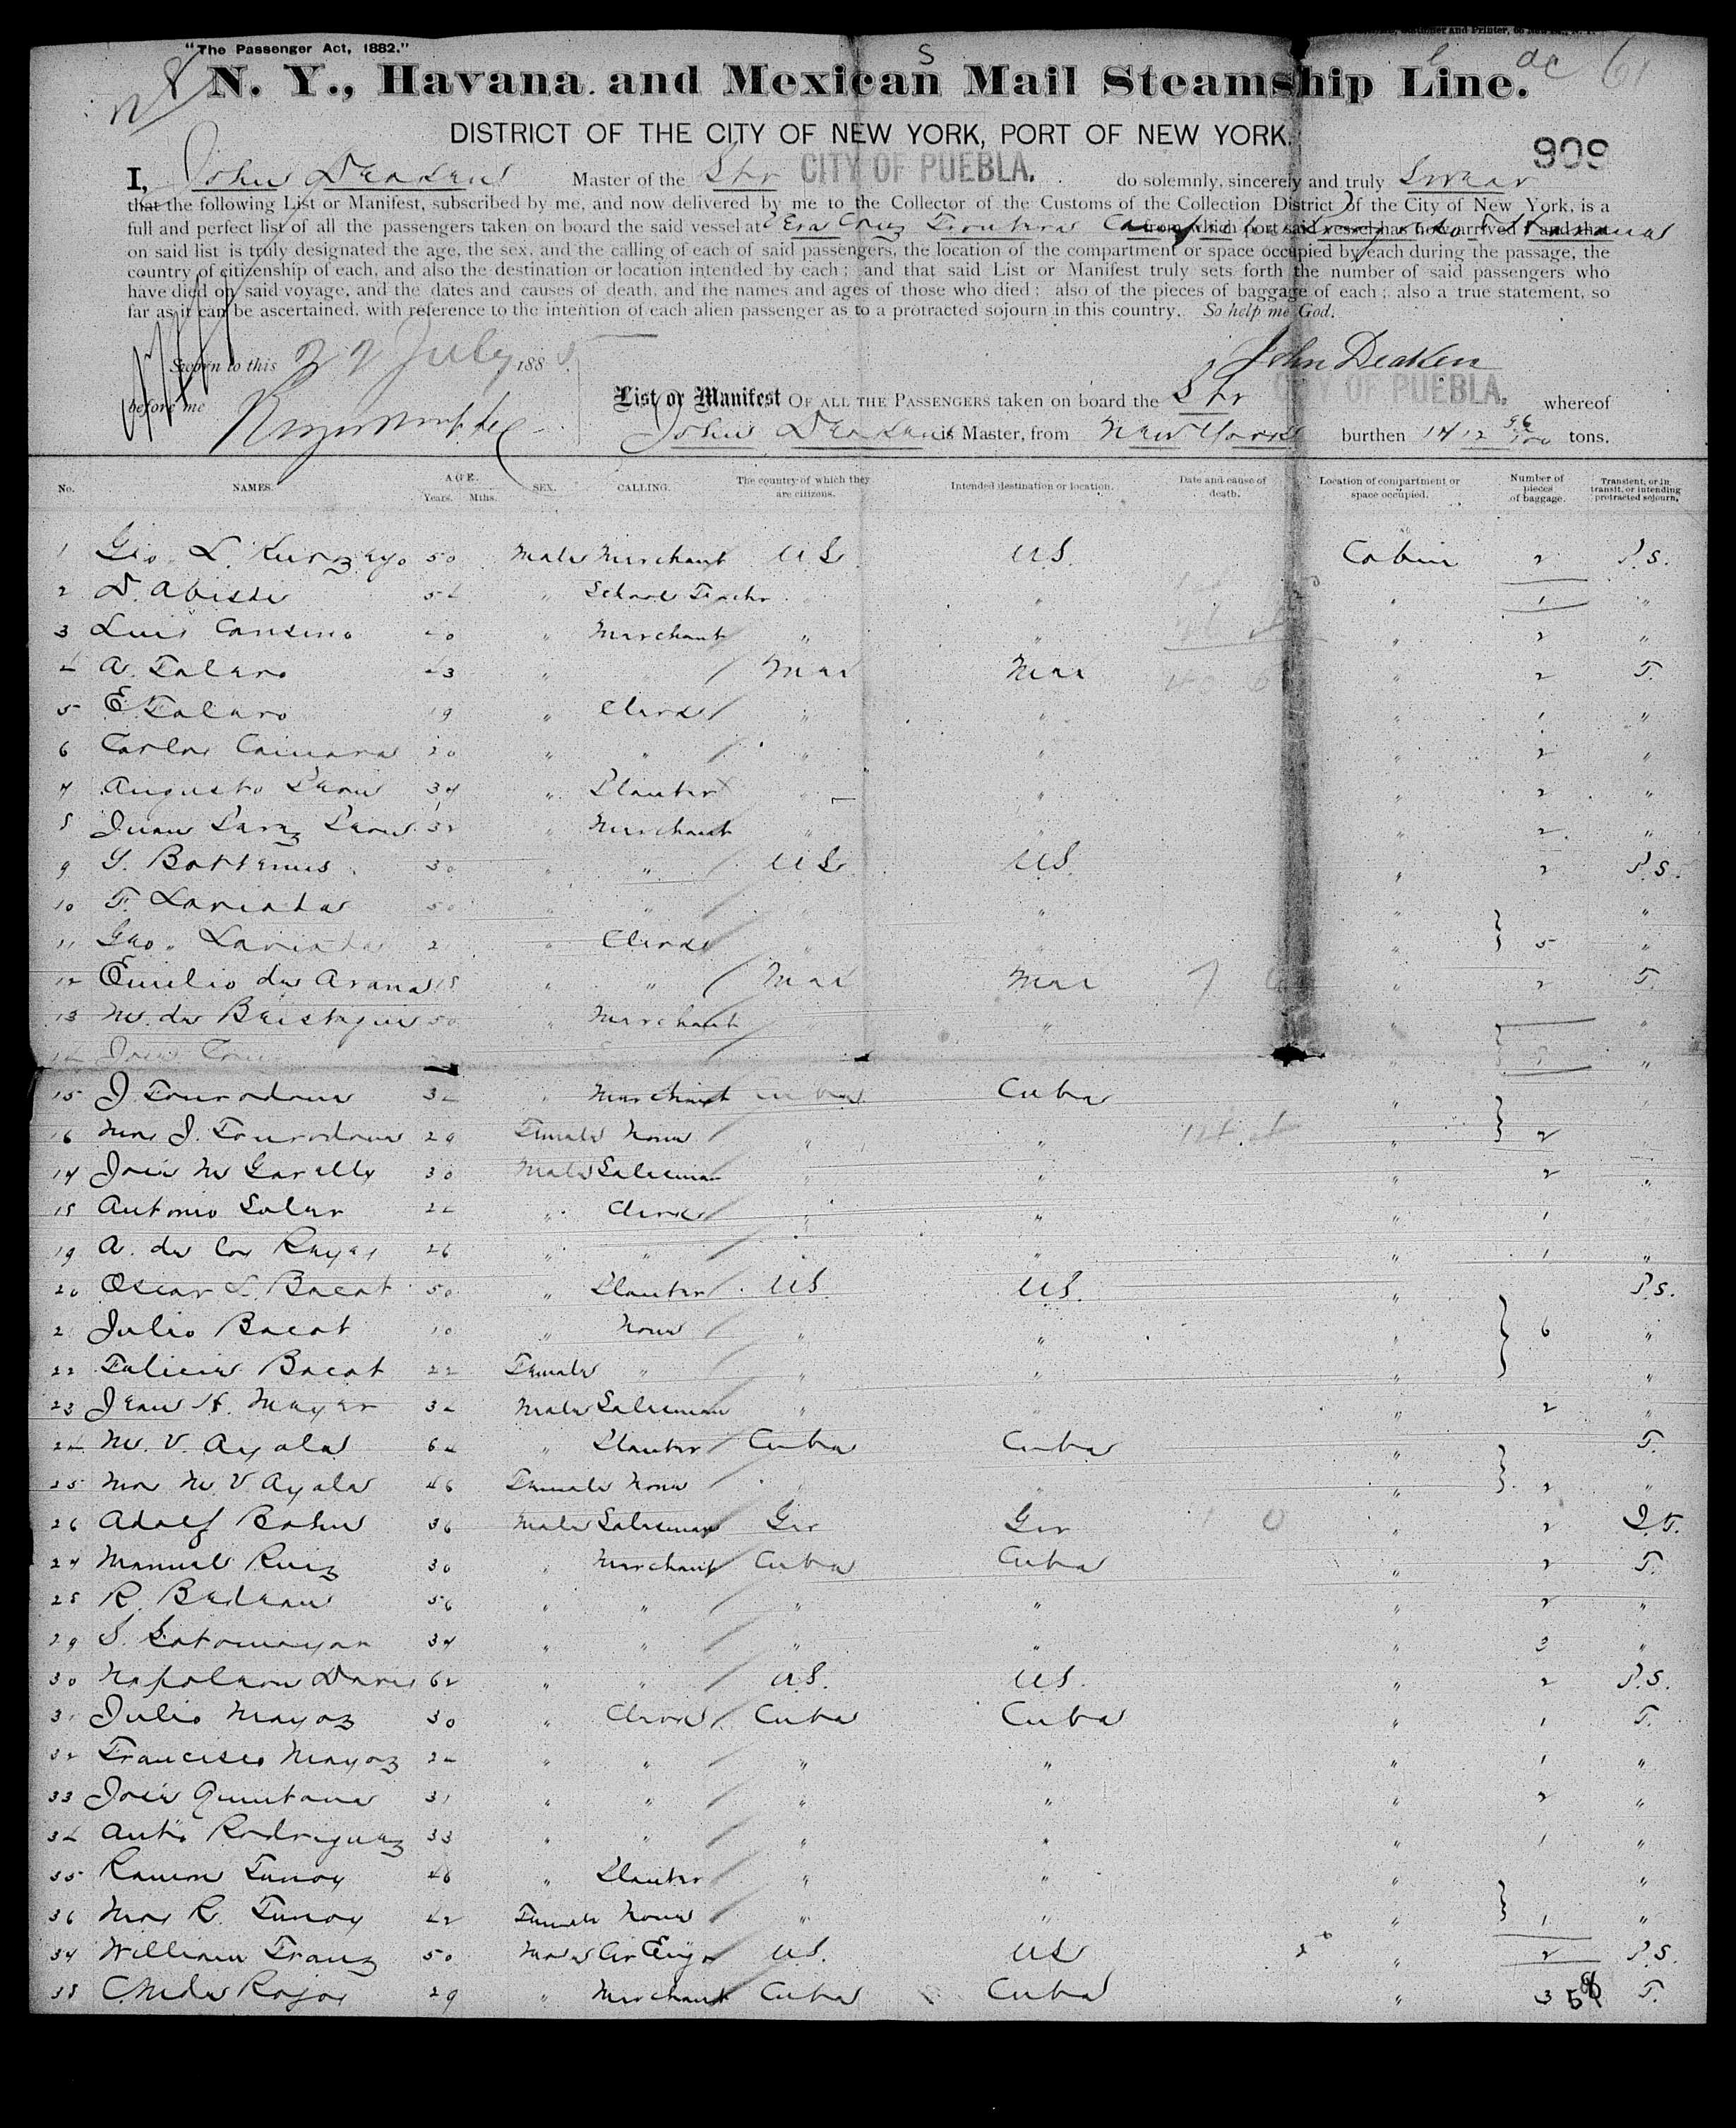 "The Passenger Act, 1882."
N. Y., Havana and Mexican Mail Steamship Line.
DISTRICT OF THE CITY OF NEW YORK, PORT OF NEW YORK.
909
I, John Deaken Master of the Str CITY OF PUEBLA. do solemnly, sincerely and truly Swear
that the following List or Manifest, subscribed by me, and now delivered by me to the Collector of the Customs of the Collection District of the City of New York, is a
full and perfect list of all the passengers taken on board the said vessel at Vera Cruz Frontera from which port said vessel has now arrived; and that
on said list is truly designated the age, the sex, and the calling of each of said passengers, the location of the compartment or space occupied by each during the passage, the
country of citizenship of each, and also the destination or location intended by each; and that said List or Manifest truly sets forth the number of said passengers who
have died on said voyage, and the dates and causes of death, and the names and ages of those who died; also of the pieces of baggage of each; also a true statement, so
far as it can be ascertained, with reference to the intention of each alien passenger as to a protracted sojourn in this country. So help me God.
Sworn to this 22 July 1885 John Deaken
before me
List or Manifest OF ALL THE PASSENGERS taken on board the Str CITY OF PUEBLA. whereof
John Deaken is Master, from New York burthen tons.
No. NAMES. AGE. Years. Mths. SEX. CALLING. The country of which they are citizens. Intended destination or location. Date and cause of death. Location of compartment or space occupied. Number of pieces of baggage. Transient, or in transit, or intending protracted sojourn.
1 Geo. L. 50 Male Merchant US US. Cabin 2 P.S.
2 D. 54 " School Teacher " " " 1 "
3 Luis Cansino 40 " Merchant " " " 2 "
4 A. Talaro 43 " " Mex Mex " 2 T.
5 E Talaro 19 " Clerk " " " 1 "
6 Carlos Camara 20 " " " " " 2 "
7 Augusto Peon 37 " Planter " " " 2 "
8 Juan Peon 32 " Merchant " " " 2 "
9 Y. 30 " " US US. " 2 P.S.
10 F. 50 " " " " " "
11 Geo. " Clerk " " " 5 "
12 Emilio de Arana 18 " " Mex Mex " 2 T.
13 M. de 50 " Merchant " " " "
14 Jose " " "
15 J. 34 " Merchant Cuba Cuba "
16 Mrs J. 29 Female None " " " 2 "
17 José M 30 Male Salesman " " " 2 "
18 Antonio Soler 24 " Clerk " " " 1 "
19 A. de los Reyes 26 " " " " " 1 "
20 Oscar L. Bacot 50 " Planter US US. " P.S.
21 Julio Bacot 10 " None " " " 6 "
22 Felicia Bacot 22 Female " " " " "
23 Jean H. Mayer 34 Male Salesman " " " 2 "
24 M. V. Ayala 64 " Planter Cuba Cuba " T.
25 Mrs M. V Ayala 46 Female None " " " 2 "
26 Adolf Bohn 36 Male Salesman Ger Ger " 2 I.T.
27 Manuel Ruiz 30 " Merchant Cuba Cuba " 2 T.
28 R. 56 " " " " " 2 "
29 S. Sotomayor 37 " " " " " 3 "
30 Napoleon Davis 62 " " U.S. US. " 2 P.S.
31 Julio Mayoz 30 " Clerk Cuba Cuba " 1 T.
32 Francisco Mayoz 24 " " " " " 1 "
33 José Quintana 31 " " " " " 2 "
34 Anto Rodriguez 33 " " " " " 1 "
35 Ramon 46 " Planter " " " "
36 Mrs R. 42 Female None " " " 1 "
37 William Franz 50 Male US. US " 2 P.S.
38 29 " Merchant Cuba Cuba " 3 T.
58